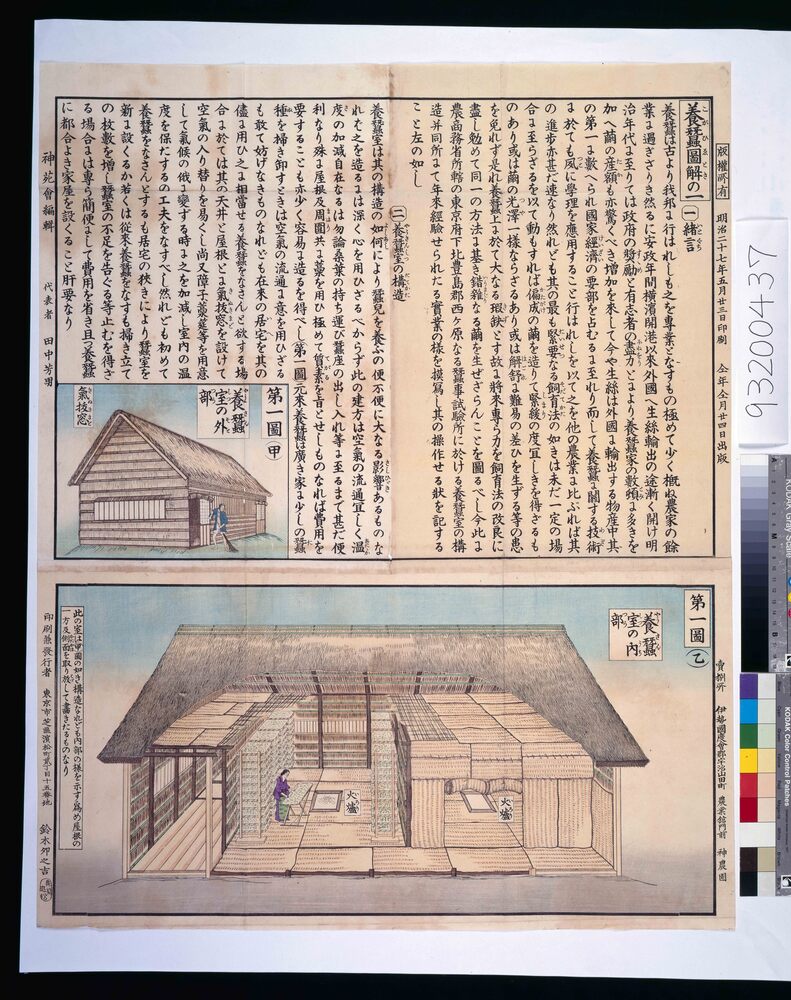 版權所有　明治二十七年五月廿三日印刷　仝年仝月廿四日出版
養蠶圖解の一
㊀緒言
養蠶は古より我邦ま行はれしも之を專業となすもの極めて少く概ね農家の餘
業ま過ぎざりき然るに安政年間橫濱開港以來外國へ生絲輸出の途漸く開け明
治年代ま至りては政府の奬勵と有志者の盡力とまより養蠶家の數頻ま多きを
加へ繭の產額も亦驚くべき增加を來して今や生絲は外國ま輸出する物產中其
の第一ま數へられ國家經濟の要部を占むるま至れり而して養蠶ま關する技術
ま於ても風に學理を應用すること行はれしを以て之を他の農業ま比ぶれば其
の進步亦甚だ速なり然れども其の最も緊要なる飼育法の如きは未だ一定の場
合ま至らざるを以て動もすれば偏成の繭を造りて緊緩の度宜しきを得ざるも
のあり或は繭の光澤一樣ならざるあり或は解舒ま難易の差ひを生ずる等の患
を免れず是れ養蠶上ま於て大なる瑕缺とす故ま將來專ら力を飼育法の改良に
盡し勉めて同一の方法ま基き錯雜なる繭を生ぜざらんことを圖るべし今此ま
農商務省所轄の東京府下北豊島郡西ヶ原なる蠶事試驗所に於ける養蠶室の構
造并同所まて年來經驗せられたる實業の樣を摸寫し其の操作せる狀を記する
こと左の如し
㊁養蠶室の構造
養蠶室は其の構造の如何により蠶兒を養ふの便不便に大なる影響あるものな
れば之を造るまは深く心を用ひざるべからず此の建方は空氣の流通宜しく溫
度の加減自在なるは勿論桑葉の持ち運び蠶座の出し入れ等ま至るまで甚だ便
利なり殊ま屋根及周圍共ま藁を用ひ極めて質素を旨とせしものなれば費用を
要することも亦少く容易ま造るを得べし第一圖元來養蠶は廣き家ま少しの蠶
種を掃き卸すときは空氣の流通ま意を用ひざる
も敢て妨げなきものなれども在來の居宅を其の
儘ま用ひ之ま相當せる養蠶をなさんと欲する場
合ま於ては其の天井と屋根とま氣拔窓を設けて
空氣の入り替りを易くし尚又障子莚等を用意
して氣候の俄ま變ずる時ま之を加減し室內の溫
度を保たするの工夫をなすべし然れども初めて
養蠶をなさんとするも居宅の狹きにより蠶室を
新ま設くるか若くは從來養蠶をなすも掃き立て
の枚數を增し蠶室の不足を告ぐる等止むを得ざ
る場合まは專ら簡便まして費用を省き且つ養蠶
に都合よき家屋を設くること肝要なり
神苑會編輯　代表者　田中芳男
第一圖㊙甲
養蠶室の外部
氣拔窓
第一圖 乙
養蠶室の內部
火爐
火爐
此の室は甲圖の如き構造なれども內部の樣を示す爲め屋根の
一方及側面を取り放して畫きたるものなり
賣捌所　伊勢國度會郡宇治山田町　農業館門前　神農園
印刷兼發行者　東京市芝區濱松町貳丁目十五番地　鈴木卯之吉
93200437
KODAK Gray Scale
KODAK Color Control Patches